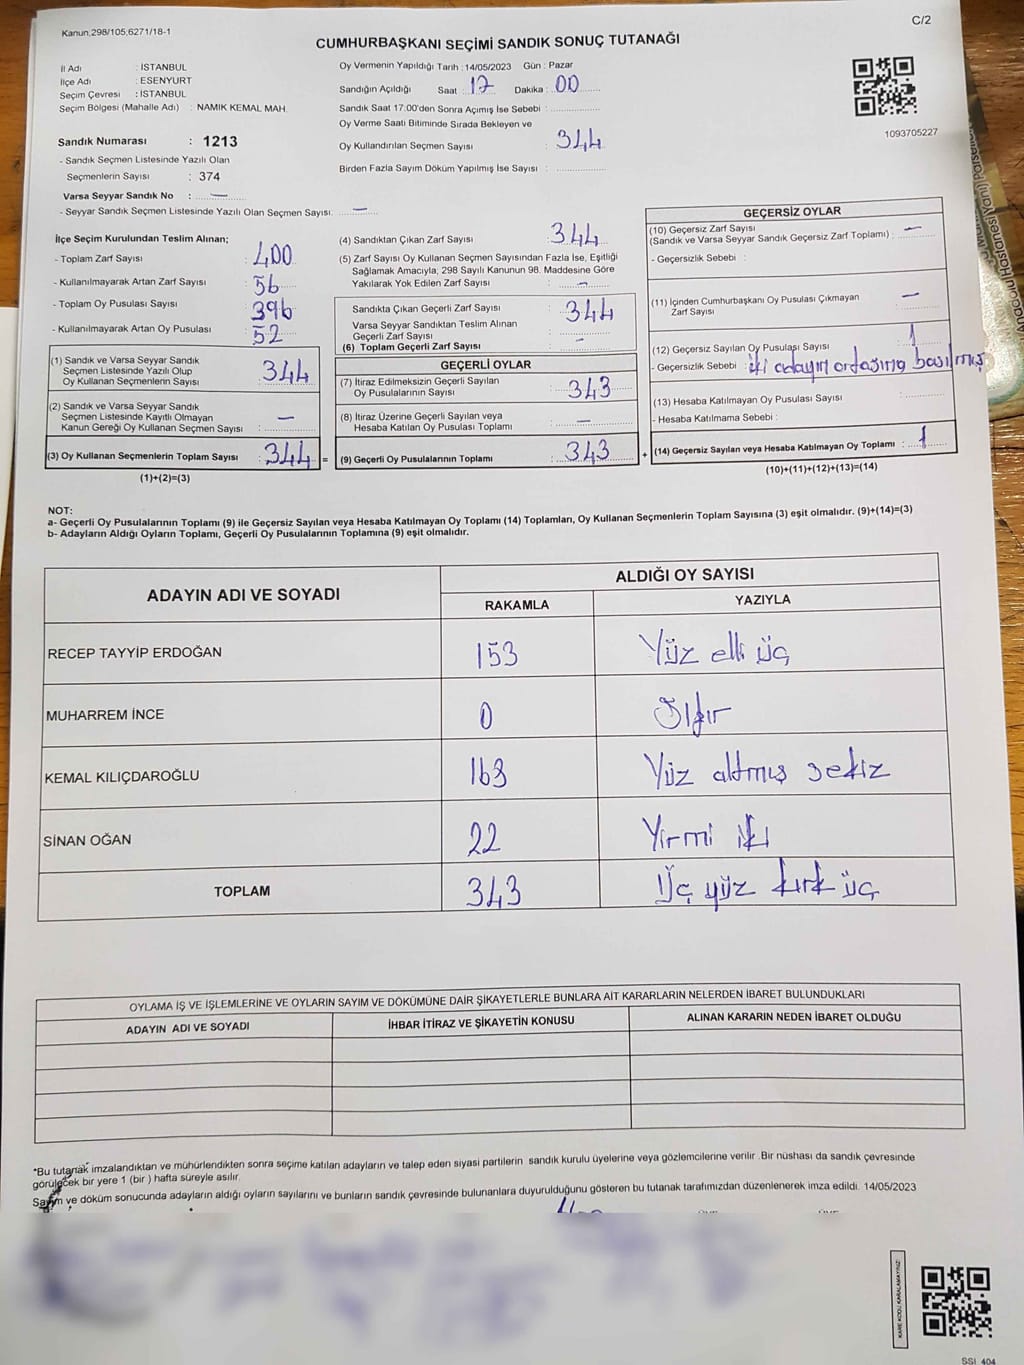 Kanun;298/105;6271/18-1
C/2
CUMHURBAŞKANI SEÇİMİ SANDIK SONUÇ TUTANAĞI
İl Adı : İSTANBUL
İlçe Adı : ESENYURT
Seçim Çevresi : İSTANBUL
Seçim Bölgesi (Mahalle Adı) : NAMIK KEMAL MAH.
Sandık Numarası : 1213
- Sandık Seçmen Listesinde Yazılı Olan
Seçmenlerin Sayısı : 374
Varsa Seyyar Sandık No : —
- Seyyar Sandık Seçmen Listesinde Yazılı Olan Seçmen Sayısı. —
Oy Vermenin Yapıldığı Tarih :14/05/2023 Gün : Pazar
Sandığın Açıldığı Saat : 17 Dakika : 00
Sandık Saat 17:00'den Sonra Açımış İse Sebebi :
Oy Verme Saatı Bitiminde Sırada Bekleyen ve
Oy Kullandırılan Seçmen Sayısı : 344
Birden Fazla Sayım Döküm Yapılmış İse Sayısı :
1093705227
İlçe Seçim Kurulundan Teslim Alınan;
- Toplam Zarf Sayısı : 400
- Kullanılmayarak Artan Zarf Sayısı : 56
- Toplam Oy Pusulası Sayısı : 396
- Kullanılmayarak Artan Oy Pusulası : 52
(1) Sandık ve Varsa Seyyar Sandık
Seçmen Listesinde Yazılı Olup
Oy Kullanan Seçmenlerin Sayısı : 344
(2) Sandık ve Varsa Seyyar Sandık
Seçmen Listesinde Kayıtlı Olmayan
Kanun Gereği Oy Kullanan Seçmen Sayısı : —
(3) Oy Kullanan Seçmenlerin Toplam Sayısı : 344 =
(1)+(2)=(3)
(4) Sandıktan Çıkan Zarf Sayısı : 344
(5) Zarf Sayısı Oy Kullanan Seçmen Sayısından Fazla İse, Eşitliği
Sağlamak Amacıyla, 298 Sayılı Kanunun 98. Maddesine Göre
Yakılarak Yok Edilen Zarf Sayısı : —
Sandıkta Çıkan Geçerli Zarf Sayısı : 344
Varsa Seyyar Sandıktan Teslim Alınan
Geçerli Zarf Sayısı : —
(6) Toplam Geçerli Zarf Sayısı
GEÇERLİ OYLAR
(7) İtiraz Edilmeksizin Geçerli Sayılan
Oy Pusulalarının Sayısı : 343
(8) İtiraz Üzerine Geçerli Sayılan veya
Hesaba Katılan Oy Pusulası Toplamı : —
(9) Geçerli Oy Pusulalarının Toplamı : 343 +
GEÇERSİZ OYLAR
(10) Geçersiz Zarf Sayısı
(Sandık ve Varsa Seyyar Sandık Geçersiz Zarf Toplamı) : —
- Geçersizlik Sebebi :
(11) İçinden Cumhurbaşkanı Oy Pusulası Çıkmayan
Zarf Sayısı : —
(12) Geçersiz Sayılan Oy Pusulası Sayısı : 1
- Geçersizlik Sebebi : iki adayın ortasına basılmış
(13) Hesaba Katılmayan Oy Pusulası Sayısı :
- Hesaba Katılmama Sebebi :
(14) Geçersiz Sayılan veya Hesaba Katılmayan Oy Toplamı : 1
(10)+(11)+(12)+(13)=(14)
NOT:
a- Geçerli Oy Pusulalarının Toplamı (9) ile Geçersiz Sayılan veya Hesaba Katılmayan Oy Toplamı (14) Toplamları, Oy Kullanan Seçmenlerin Toplam Sayısına (3) eşit olmalıdır. (9)+(14)=(3)
b- Adayların Aldığı Oyların Toplamı, Geçerli Oy Pusulalarının Toplamına (9) eşit olmalıdır.
ADAYIN ADI VE SOYADI
ALDIĞI OY SAYISI
RAKAMLA YAZIYLA
RECEP TAYYİP ERDOĞAN 153 Yüz elli üç
MUHARREM İNCE 0 Sıfır
KEMAL KILIÇDAROĞLU 168 Yüz altmış sekiz
SİNAN OĞAN 22 Yirmi iki
TOPLAM 343 Üç yüz kırk üç
OYLAMA İŞ VE İŞLEMLERİNE VE OYLARIN SAYIM VE DÖKÜMÜNE DAİR ŞİKAYETLERLE BUNLARA AİT KARARLARIN NELERDEN İBARET BULUNDUKLARI
ADAYIN ADI VE SOYADI İHBAR İTİRAZ VE ŞİKAYETİN KONUSU ALINAN KARARIN NEDEN İBARET OLDUĞU
*Bu tutanak imzalandıktan ve mühürlendikten sonra seçime katılan adayların ve talep eden siyasi partilerin sandık kurulu üyelerine veya gözlemcilerine verilir .Bir nüshası da sandık çevresinde
görülecek bir yere 1 (bir ) hafta süreyle asılır.
Sayım ve döküm sonucunda adayların aldığı oyların sayılarını ve bunların sandık çevresinde bulunanlara duyurulduğunu gösteren bu tutanak tarafımızdan düzenlenerek imza edildi. 14/05/2023
KARE KODU KARALAMAYINIZ!
SSİ 404